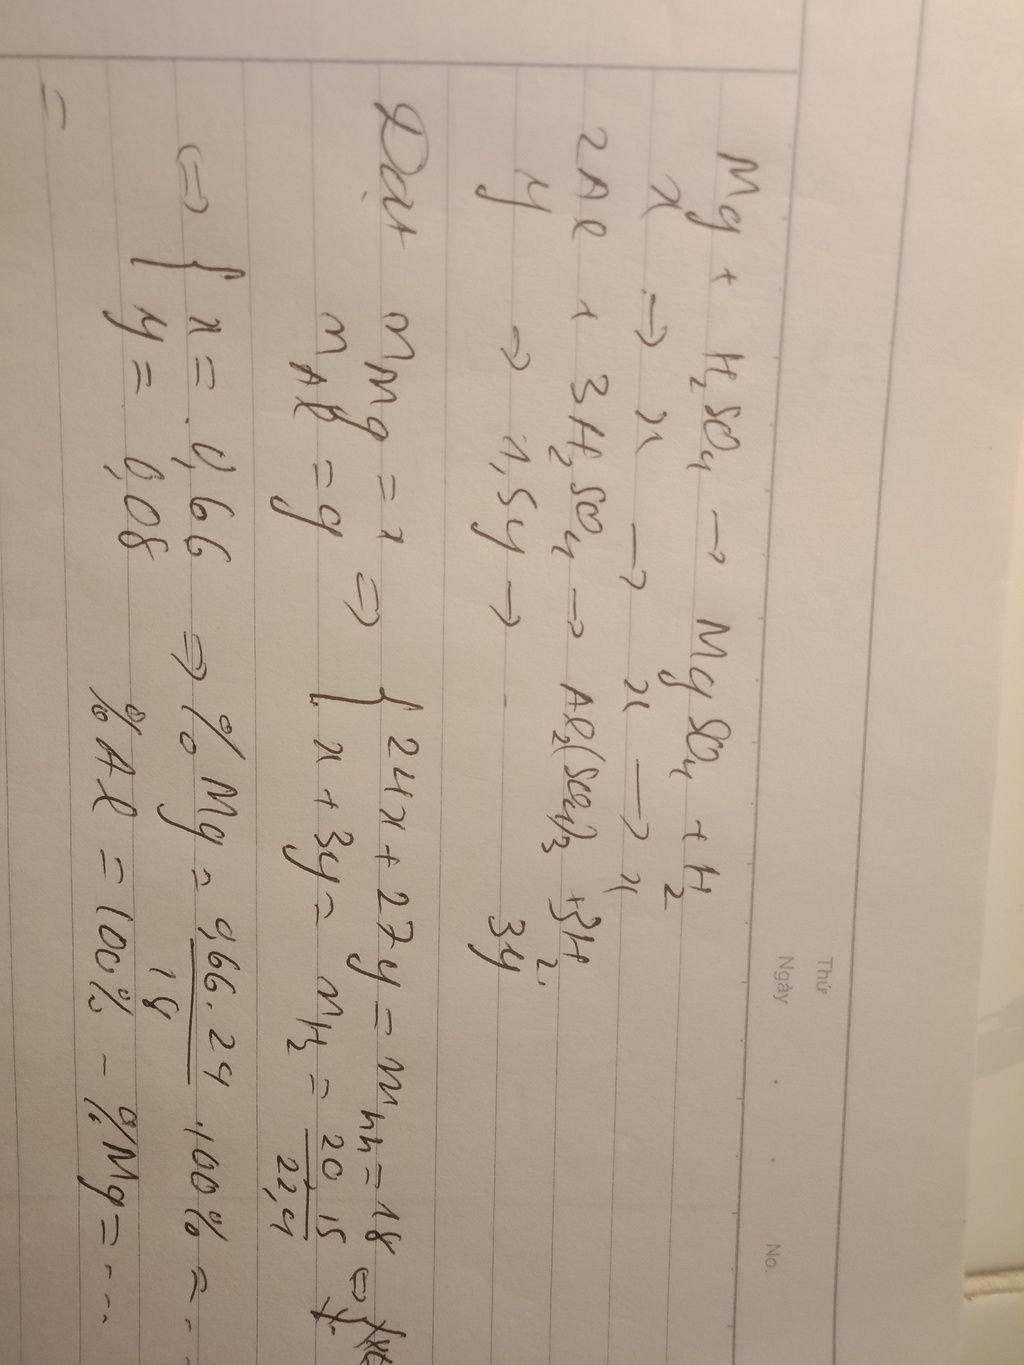 Thứ
Ngày
No.
Mg + H₂SO₄ → MgSO₄ + H₂
x → x → x → x
2Al + 3H₂SO₄ → Al₂(SO₄)₃ + 3H₂
y → 1,5y → 3y
Đặt nMg = x
nAl = y ⇒ { 24x + 27y = mhh = 18 ⇔
x + 3y = nH₂ = 20,15/22,4
⇔ { x = 0,66 ⇒ %Mg = 0,66.24/18 .100% = ..
y = 0,08 %Al = 100% - %Mg = ....
=